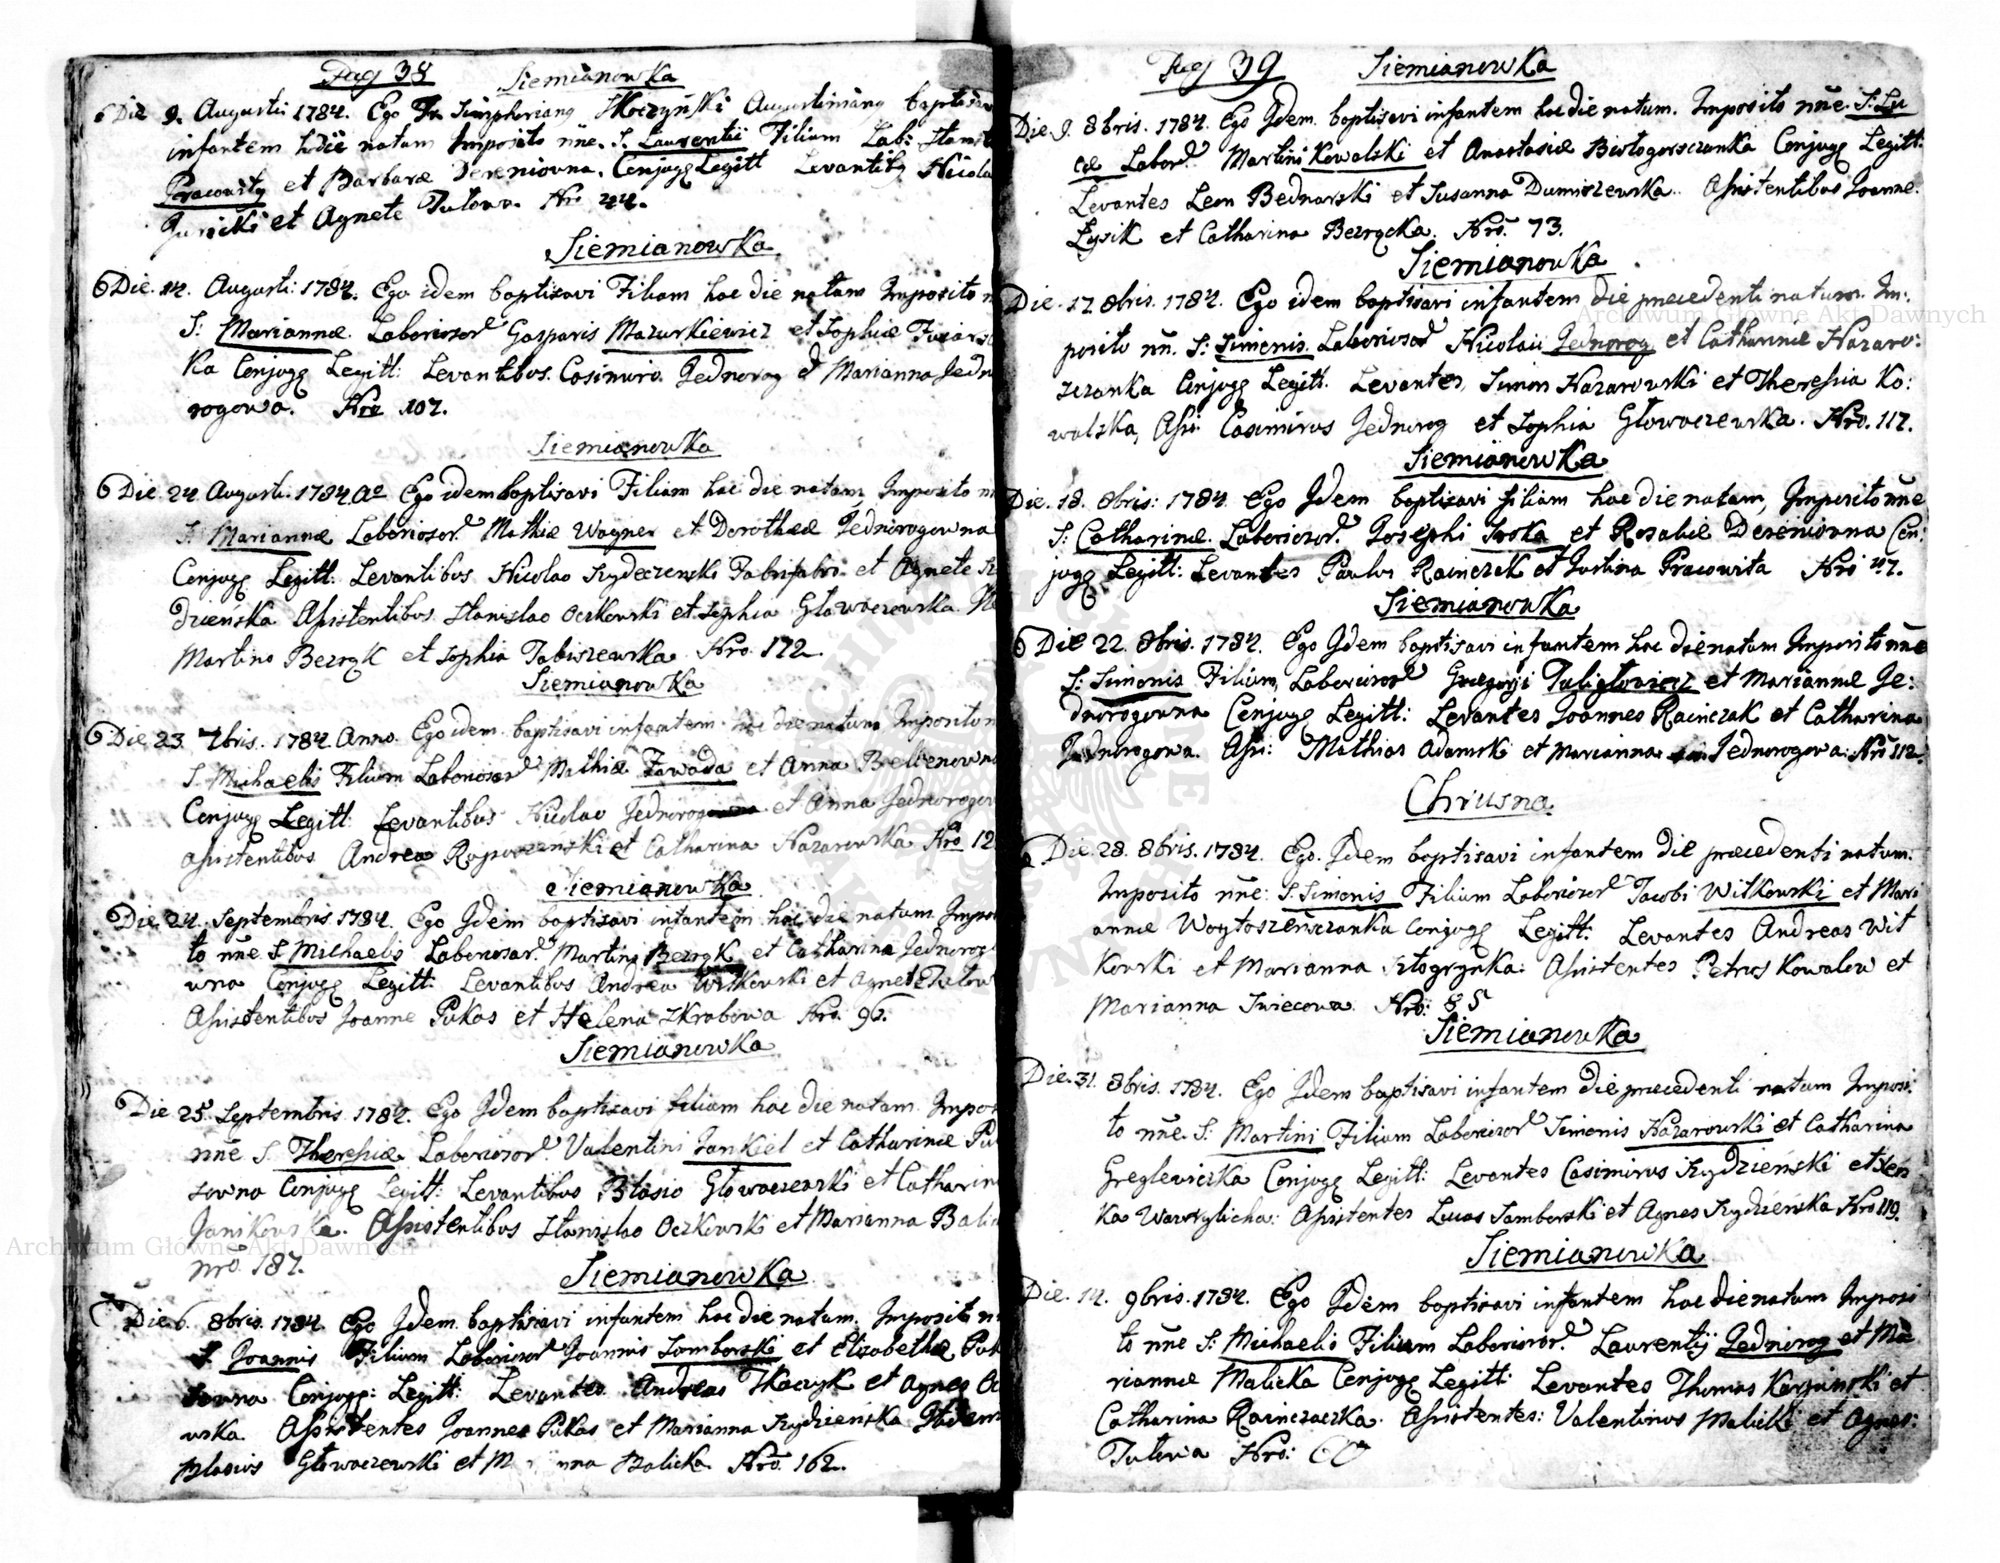 Pag 38 Siemianowka
Die 9. Augusti 1784. Ego Fr. Simphoriang Skoczyński Augustiniang
infantem natum Imposito nne. S. Laurentii Filium Lab:
Pracowity et Barbarae Dereniovna. Conjugę Legitt Levantibg
et Agnete Tutowa. Nro 44.
Siemianowka
Die. 14. Augusti: 1784. Ego idem baptisavi Filiam hac die natam Imposito
S: Mariannae. Laboriosor Gasparis Mazurkiewicz et Sophiae
Ka Conjugę Legitt: Levantibus. Casimiro. Jednorog et Marianna Jedn
rogowa. Nro 107.
Siemianowka
Die 24 Augusti. 1784 Ego idem baptisavi Filiam hac die natam Imposito
S: Mariannae Laboriosor Mathiae Wagner et Dorotheae Jednorogowna
Conjugę Legitt: Levantibus Nicolao et Agnete
Assistentibus Stanislao Oczkowski et Sophia Głowaczewska.
Martino Bezrąk et Sophia Tobiszewska Nro. 172.
Siemianowka
Die 23. 7bris. 1784 Anno. Ego idem baptisavi infantem hac die natum Imposito
S. Michaelis Filium Laboriosor Mathiae Zawada et Anna
Conjugę Legitt: Levantibus Nicolao et Anna
assistentibus Andrea et Catharina Nazarowska Nro 12
Siemianowka
Die 24. Septembris 1784. Ego Idem baptisavi infantem hac die natum Impos
to nne S Michaelis Laboriosor. Martini Bezrąk et Catharina Jednorog
wna Conjugę Legitt: Levantibus Andrea Witkowski et Agnete
Assistentibus Joanne Pukas et Helena Skrabowa Nro. 96.
Siemianowka
Die 25 Septembris 1784. Ego Idem baptisavi filiam hac die natam Impos
nne S Theresiae Laboriosor Valentini Jankiel et Catharinae
sowna Conjugę Legitt: Levantibus Blasio Głowaczewski et Catharin
Janikowska. Assistentibus Stanislao Oczkowski et Marianna
nro. 187.
Siemianowka
Die 6. 8bris. 1784. Ego Idem baptisavi infantem hac die natum. Imposit
S. Joannis Filium Laboriosor Joannis Samborski et Elizabethae
Conjugę: Legitt: Levantes Andreas Tkaczyk et Agnes
wska. Assistentes Joannes Pukas et Marianna Szydzieńska
Blasius Głowaczewski et Balicka Nro. 162.
Pag 39 Siemianowka
Die. 9. 8bris. 1784. Ego Idem baptisavi infantem hac die natum. Imposito nne. S. Lu
cae Labor Martini Kowalski et Anastasiae Conjugę Legitt:
Levantes Leon Bednarski et Susanna Dumiszewska. Assistentibus Joanne
Łysik et Catharina Bezrącka. Nro. 73.
Siemianowka
Die. 17 8bris. 1784. Ego idem baptisavi infantem die praecedenti natum. Im:
posito nn. S: Simonis. Laboriosor Nicolaii Jednorog et Catharinae Nazaro:
szczanka Conjugę Legitt. Levantes, Simon Nazarowski et Theressia Ko:
walska, Assi: Casimirus Jednorog et Sophia Głowaczewska. Nro. 117.
Siemianowka
Die. 18. 8bris: 1784. Ego Idem baptisavi filiam hac die natam, Imposito nne
S: Catharinae. Laboriosor. Josephi et Rosaliae Dereniowna Con:
jugę Legitt: Levantes Paulus Rainczak et Justina Pracowita Nro 47.
Siemianowka
Die 22. 8bris. 1784. Ego Idem baptisavi infantem hac die natum Imposito nne
S: Simonis Filium, Laboriosor Gregorii et Mariannae Je:
dnorogowna Conjugę Legitt: Levantes Joannes Rainczak et Catharina
Jednorogowa. Assi: Mathias Adamski et Marianna Jednorogowa. Nro 112.
Chrusna
Die. 28. 8bris. 1784. Ego. Idem baptisavi infantem die praecedenti natum.
Imposito nne: S. Simonis Filium Laboriosor Jacobi Witkowski et Mari
annae Conjugę Legitt: Levantes Andreas Wit
kowski et Marianna. Assistentes Petrus Kowalew et
Marianna Nro: 85
Siemianowka
Die. 31. 8bris. 1784. Ego Idem baptisavi infantem die praecedenti natum Imposi:
to nne. S: Martini Filium Laboriosor Simonis Nazarowski et Catharina
Greglewiczka Conjugę Legitt: Levantes Casimirus Szydzieński et
ka Wawrylicha: Assistentes Lucas Samborski et Agnes Szydzieńska Nro 119.
Siemianowka
Die. 14. 9bris. 1784. Ego Idem baptisavi infantem hac die natum Imposi
to nne S: Michaelis Filium Laboriosor. Laurentij Jednorog et Ma
riannae Malicka Conjugę Legitt: Levantes Thomas et
Catharina Rainczaczka. Assistentes: Valentinus Malicki et Agnes:
Tutowa Nro:
Archiwum Główne Akt Dawnych
Archiwum Główne Akt Dawnych